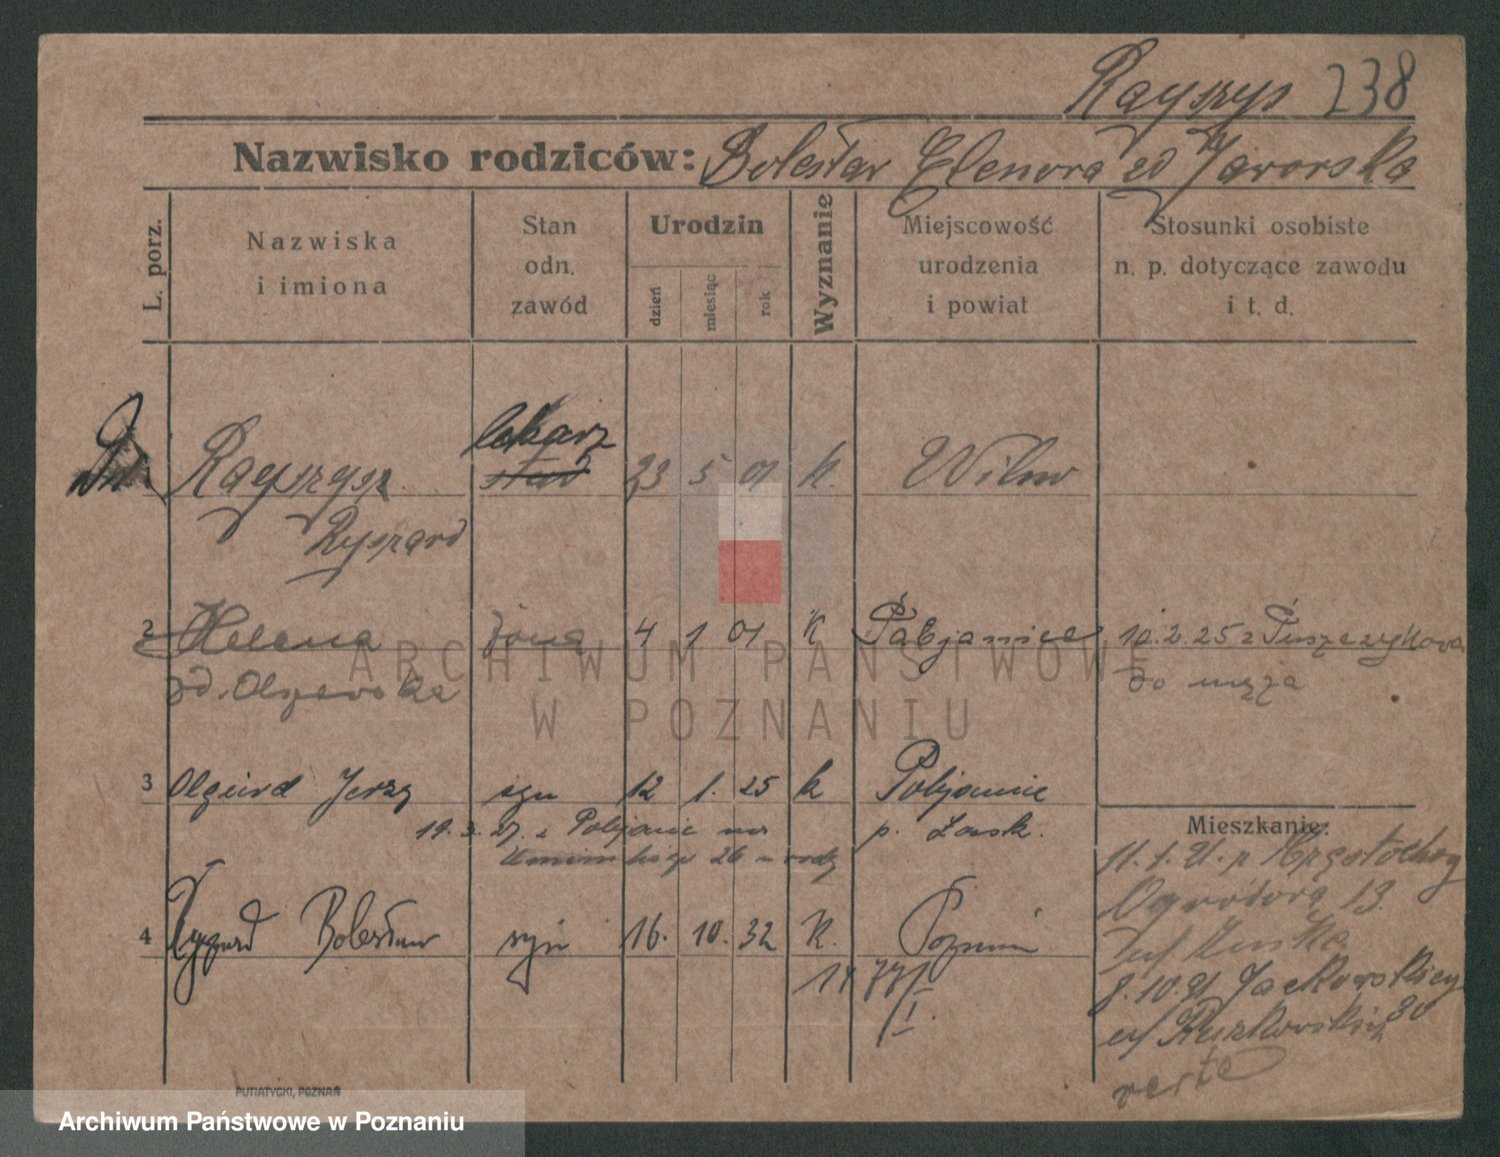 Rayszys 238
Nazwisko rodziców: Bolesław Elenora zd Jaworska
L. porz.
Nazwiska
i imiona
Stan
odn.
zawód
Urodzin
dzień
miesiąc
rok
Wyznanie
Miejscowość
urodzenia
i powiat
Stosunki osobiste
n. p. dotyczące zawodu
i t. d.
lekarz
Dr. 23 5 01 k. Wilno
Ryszard
2 Helena żona 4 1 01 K Pabjanice 10.2.25 z
zd. Olszewska do męża
3 Olgierd Jerzy syn 12 1. 25 k Pabjanice
19.3.27. z Pabjanic na p. Łask.
26
Mieszkanie:
11.1.21. p
Ogrodowa 13.
4 Ryszard Bolesław syn 16. 10. 32 K. Poznań
8.10.21 Jackowskiego
30
verte
ARCHIWUM PAŃSTWOWE
W POZNANIU
PUTIATYCKI, POZNAŃ
Archiwum Państwowe w Poznaniu